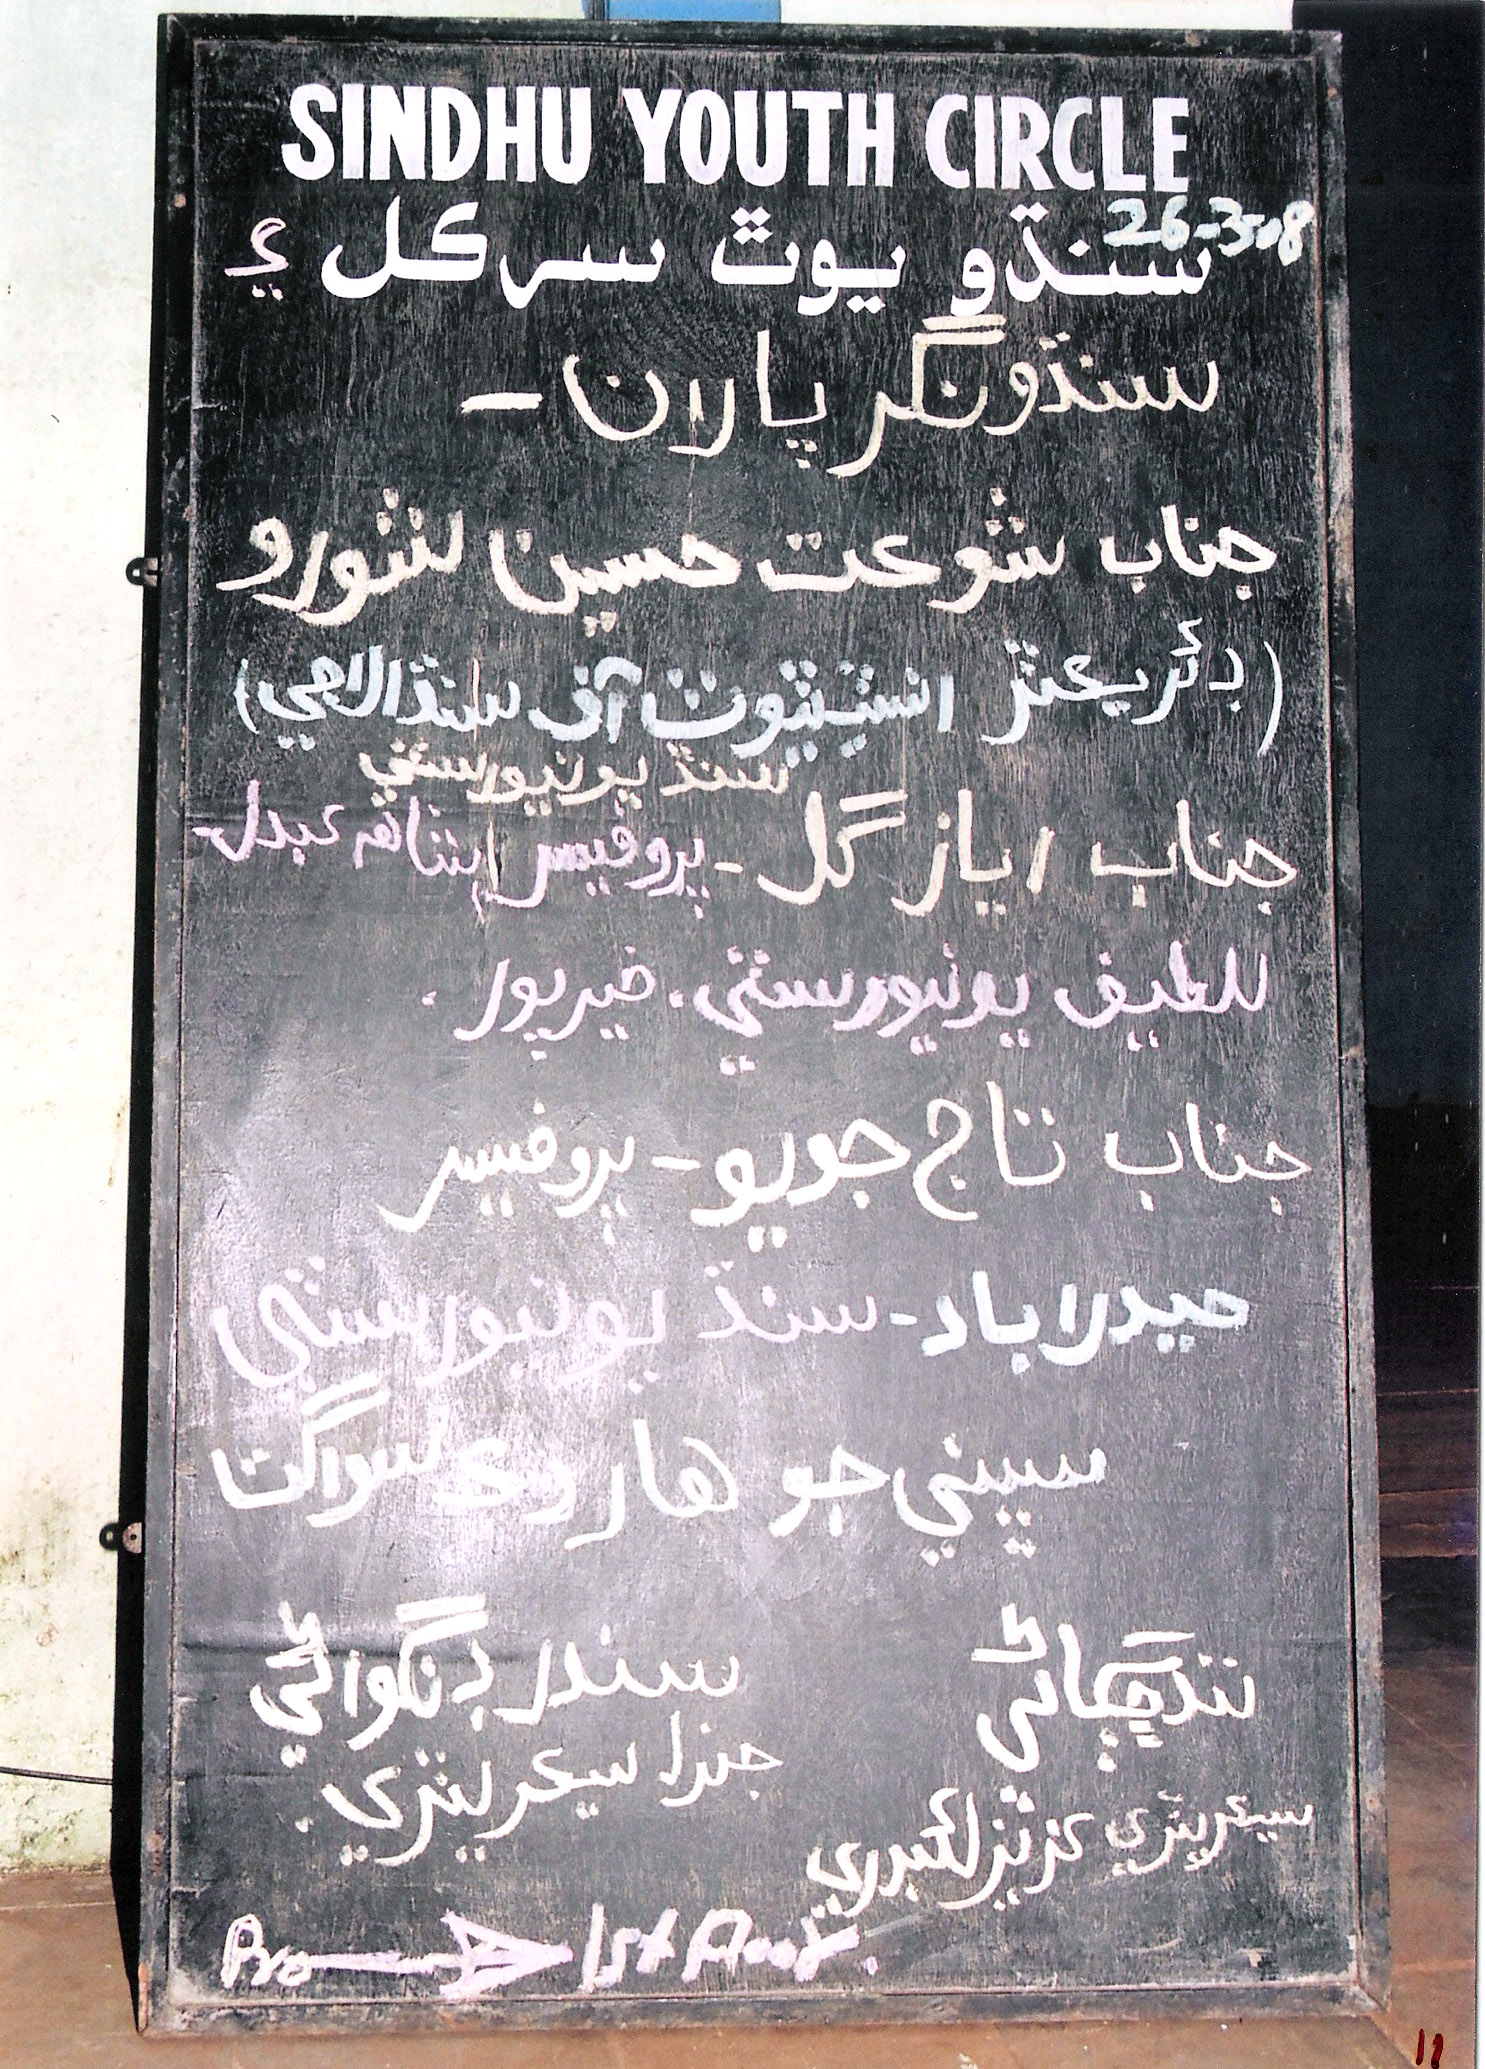 SINDHU YOUTH CIRCLE
26-3-08
سنڌو يوٿ سرڪل ۽
سنڌونگر پاران -
جناب شوڪت حسين شورو
(ڊائريڪٽر انسٽيٽيوٽ آف سنڌالاجي)
سنڌ يونيورسٽي
جناب اياز گل - پروفيسر
لطيف يونيورسٽي. خيرپور.
جناب تاج جويو - پروفيسر
حيدراباد - سنڌ يونيورسٽي
سڀني جو هاردڪ سواگت
نند ڇڳاڻي
سندر ڊنگواڻي
جنرل سيڪريٽري
سيڪريٽري
Pro 1st Floor.
11